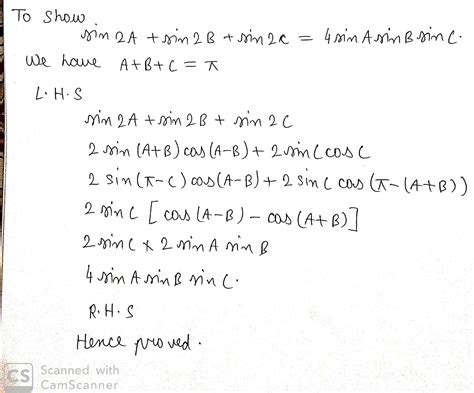 To show
sin 2A + sin 2B + sin 2C = 4 sin A sin B sin C.
We have A+B+C = π
L.H.S
sin 2A + sin 2B + sin 2C
2 sin (A+B) cos (A-B) + 2 sin C cos C
2 sin (π-C) cos (A-B) + 2 sin C cos (π-(A+B))
2 sin C [cos (A-B) - cos (A+B)]
2 sin C x 2 sin A sin B
4 sin A sin B sin C.
R.H.S
Hence proved.
CS Scanned with
CamScanner